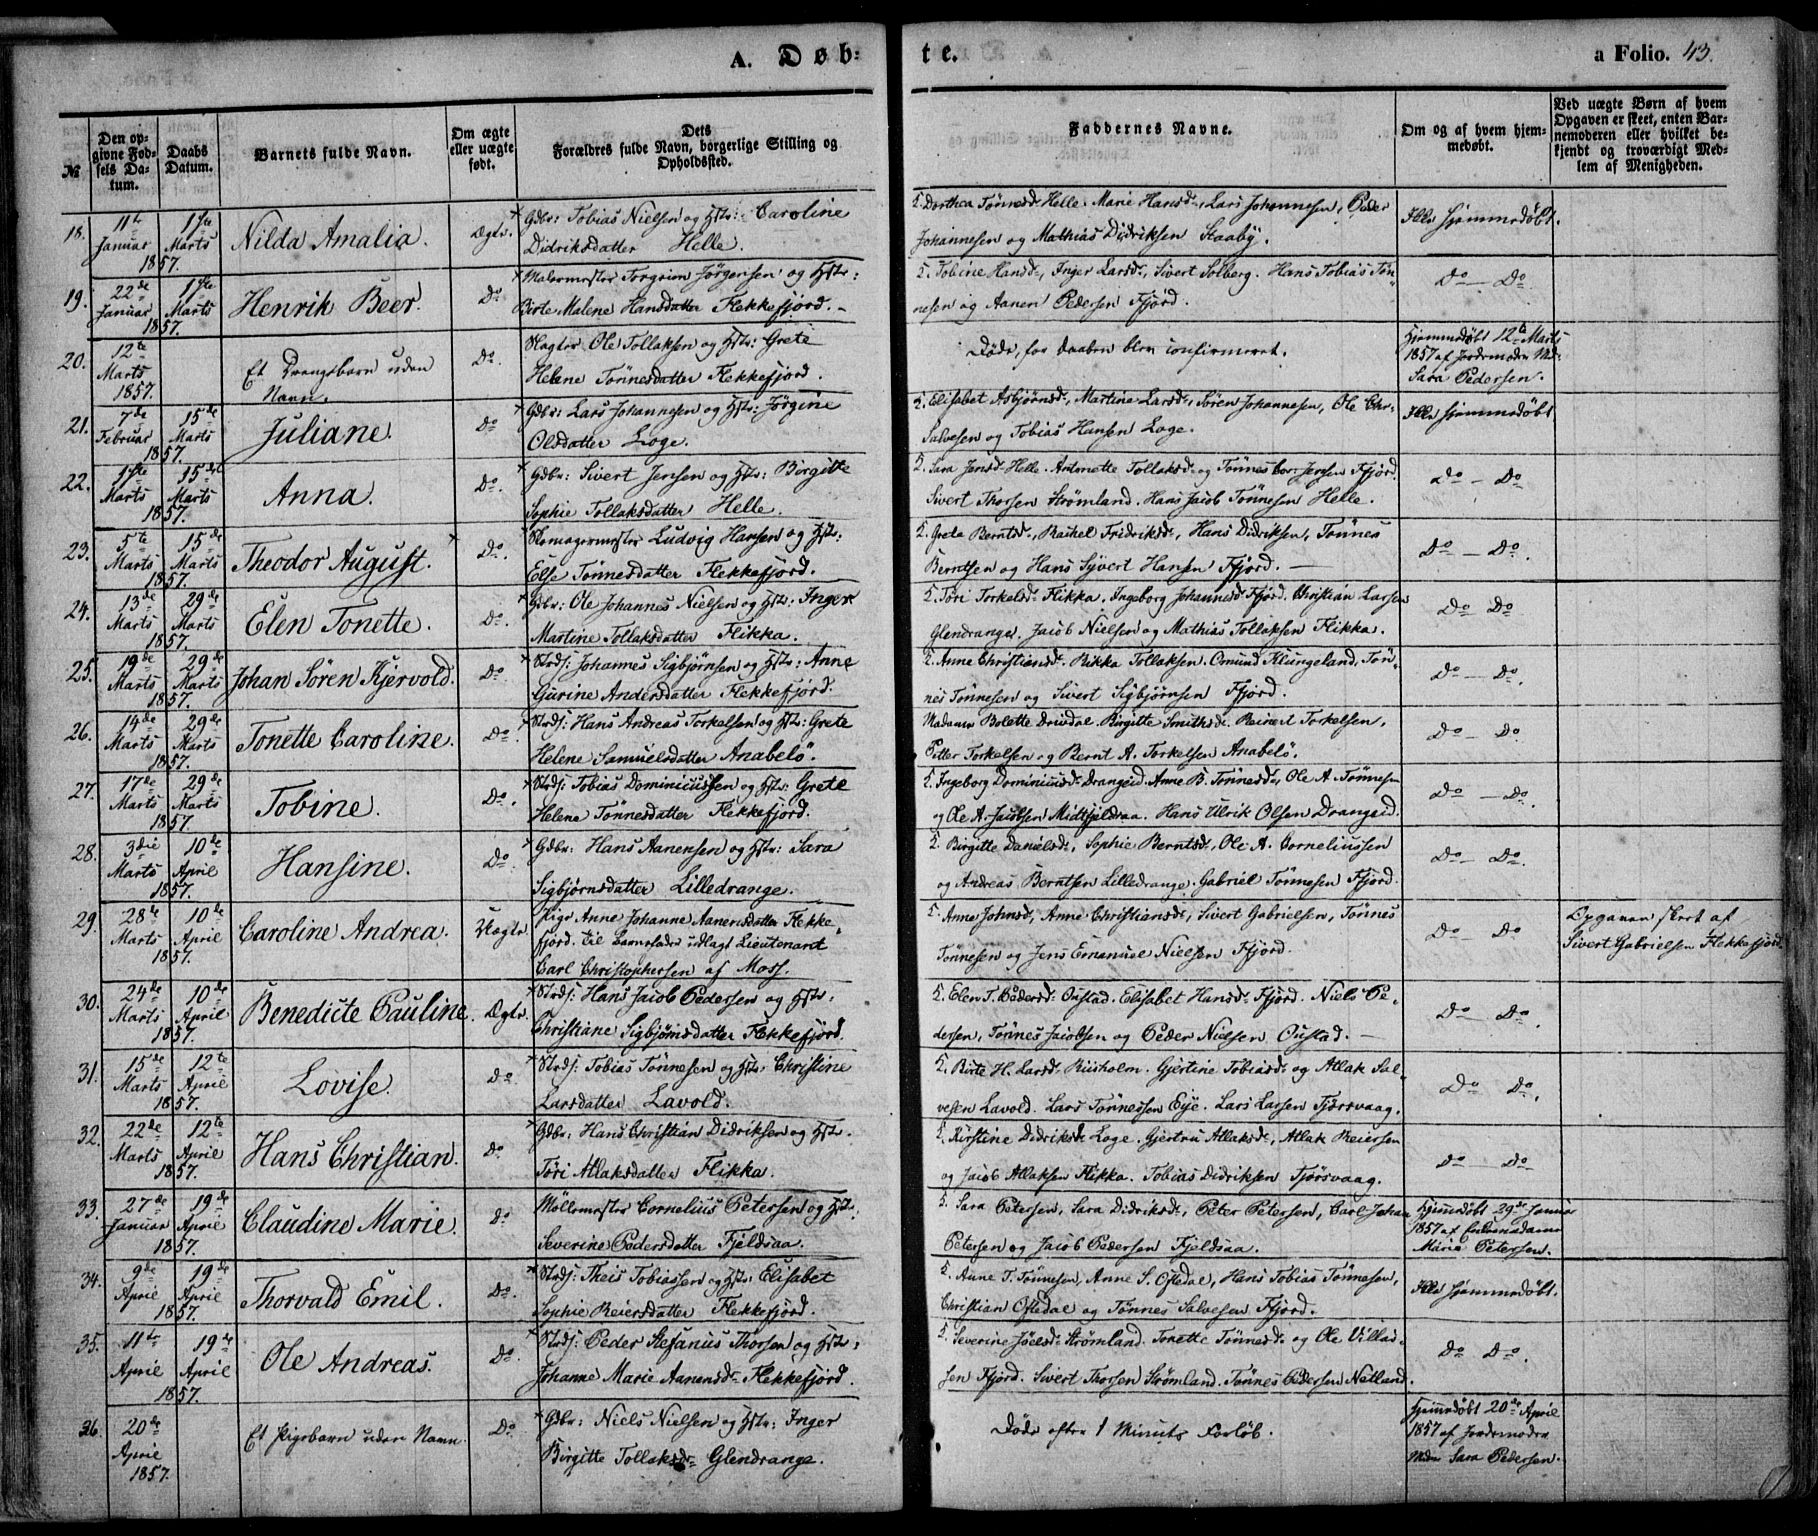 A. Døb:
te.
a Folio. 43.
№
Den opgivne Fødsels Datum.
Daabs Datum.
Barnets fulde Navn.
Om ægte eller uægte født.
Dets Forældres fulde Navn, borgerlige Stilling og Opholdssted.
Faddernes Navne.
Om og af hvem hjemmedøbt.
Ved uægte Børn af hvem Opgaven er skeet, enten Barnemoderen eller hvilket bekjendt og troværdigt Medlem af Menigheden.
18. 11te Januar 1857. 1ste Marts Nilda Amalia. Ægte. Gdbr: Tobias Nielsen og Hstr: Caroline
Didriksdatter Helle.
Dorthea Tønnesd. Helle. Marie Hansd., Lars Johannesen, Peder
Johannesen og Mathias Didriksen Staaby.
Ikke hjemmedøbt.
19. 22de Januar 1857. 1ste Marts Henrik Beer. Do Malermester Torgrim Jørgensen og Hstr:
Birte Malene Hansdatter Flekkefjord.
Tobine Hansd., Inger Larsd., Sivert Solberg. Hans Tobias Tønnesen
og Aanen Pedersen Fjord.
Do — Do
20. 12te Marts 1857. Et Drengebarn uden Navn. Do. Slagter Ole Tollaksen og Hstr: Grete
Helene Tønnesdatter Flekkefjord.
Døde, før Daaben blev confirmeret.
Hjemmedøbt 12te Marts
1857 af Jordemoder Md.
Sara Pedersen.
21. 7de Februar 1857. 15de Marts Juliane. Do Gdbr: Lars Johannesen og Hstr: Jørgine
Olsdatter Loge.
Elisabet Asbjørnsd., Martine Larsd., Søren Johannesen, Ole Chr.
Salvesen og Tobias Hansen Loge.
Ikke hjemmedøbt
22. 1ste Marts 1857. 15de Marts Anna. Do. Gdbr: Sivert Jensen og Hstr: Birgitte
Sophie Tollaksdatter Helle.
Sara Jensd. Helle. Antonette Tollaksd. og Tønnes Cor: Jensen Fjord.
Sivert Thorsen Strømland. Hans Jacob Tønnesen Helle.
Do — Do
23. 5te Marts 1857. 15de Marts Theodor August. Do. Skomagermester Ludvig Hansen og Hstr:
Else Tønnesdatter Flekkefjord.
Grete Berntsd., Rachel Fridriksd., Hans Didriksen, Tønnes
Berntsen og Hans Syvert Hansen Fjord.
Do — Do.
24. 13de Marts 1857. 29de Marts Elen Tonette. Do. Gdbr: Ole Johannes Nielsen og Hstr: Inger
Martine Tollaksdatter Flikka.
Tori Torkelsd. Flikka. Ingeborg Johannesd. Fjord. Christian Larsen
Glendrange. Jacob Nielsen og Mathias Tollaksen Flikka.
Do Do
25. 19de Marts 1857. 29de Marts Johan Søren Kjervold. Do. Strds: Johannes Sigbjørnsen og Hstr: Anne
Gurine Andersdatter Flekkefjord.
Anne Christiansd. Rikka Tollaksen. Omund Klungeland. Tønnes
Tønnesen og Sivert Sigbjørnsen Fjord.
Do — Do.
26. 14de Marts 1857. 29de Marts Tonette Caroline. Do. Strds: Hans Andreas Torkelsen og Hstr: Grete
Helene Samuelsdatter Anabelø.
Madame Bolette Drivdal. Birgitte Smithsd. Reinert Torkelsen,
Petter Torkelsen og Bernt A. Torkelsen Anabelø.
Do — Do.
27. 17de Marts 1857. 29de Marts Tobine. Do. Strds: Tobias Dominicussen og Hstr: Grete
Helene Tønnesdatter Flekkefjord.
Ingeborg Dominicusd. Drangeid. Anne B. Tønnesd., Ole A. Tønnesen
og Ole A. Jacobsen Midtfjeldsaa. Hans Ulrik Olsen Drangeid.
Do — Do.
28. 3die Marts 1857. 10de April Hansine. Do. Gdbr: Hans Aanensen og Hstr: Sara
Sigbjørnsdatter Lilledrange.
Birgitte Danielsd., Sophie Berntsd., Ole A. Corneliussen
og Andreas Berntsen Lilledrange. Gabriel Tønnesen Fjord.
Do — Do.
29. 28de Marts 1857. 10de April Caroline Andrea. Uægte. Pige Anne Johanne Aanensdatter Flekkefjord.
Til Barnefader udlagt Lieutenant
Carl Christophersen af Moss.
Anne Johnsd., Anne Christiansd., Sivert Gabrielsen, Tønnes
Tønnesen og Jens Emanuel Nielsen Fjord.
Do Do
Opgaven skeet af
Sivert Gabrielsen Flekkefjord.
30. 24de Marts 1857. 10de April Benedicte Pauline. Ægte. Strds: Hans Jacob Pedersen og Hstr:
Christiane Sigbjørnsdatter Flekkefjord.
Elen T. Pedersd. Oustad. Elisabet Hansd. Fjord. Niels Pedersen,
Tønnes Jacobsen og Peder Nielsen Oustad.
Do Do.
31. 15de Marts 1857. 12te April Lovise. Do. Strds: Tobias Tønnesen og Hstr: Christine
Larsdatter Lavold.
Birte H. Larsd. Riisholm. Gjertine Tobiasd. og Atlak Salvesen
Lavold. Lars Tønnessen Eije. Lars Larsen Tjørsvaag.
Do Do.
32. 22de Marts 1857. 12te April Hans Christian. Do. Gdbr: Hans Christian Didriksen og Hstr.
Tori Atlaksdatter Flikka.
Kirstine Didriksd. Loge. Gjertru Atlaksd., Atlak Reiersen
og Jacob Atlaksen Flikka. Tobias Didriksen Tjørsvaag.
Do Do
33. 27de Januar 1857. 19de April Claudine Marie. Do Møllemester Cornelius Petersen og Hstr:
Severine Pedersdatter Fjeldsaa.
Sara Petersen, Sara Didriksd., Peter Petersen, Carl Johan
Petersen og Jacob Pedersen Fjeldsaa.
Hjemmedøbt 29de Januar
1857 af Enkemadame
Marie Petersen.
34. 9de April 1857. 19de April Thorvald Emil. Do. Strds: Theis Tobiassen og Hstr: Elisabet
Sophie Reiersdatter Flekkefjord.
Anne T. Tønnesen, Anne S. Oftedal, Hans Tobias Tønnesen,
Christian Oftedal og Tønnes Salvesen Fjord.
Ikke hjemmedøbt.
35. 11te April 1857. 19de April Ole Andreas. Do. Strds: Peder Stefanus Thorsen og Hstr:
Johanne Marie Aanensd. Flekkefjord.
Severine Joelsd. Strømland. Tonette Tønnesd. og Ole Villadsen
Fjord. Sivert Thorsen Strømland. Tønnes Pedersen Netland.
Do Do.
36. 20de April 1857. Et Pigebarn uden Navn. Do. Gdbr: Niels Nielsen og Hstr: Inger
Birgitte Tollaksd. Glendrange.
Døde efter 1 Minuts Forløb.
Hjemmedøbt 20de April
1857 af Jordemoder
Mdm Sara Pedersen.